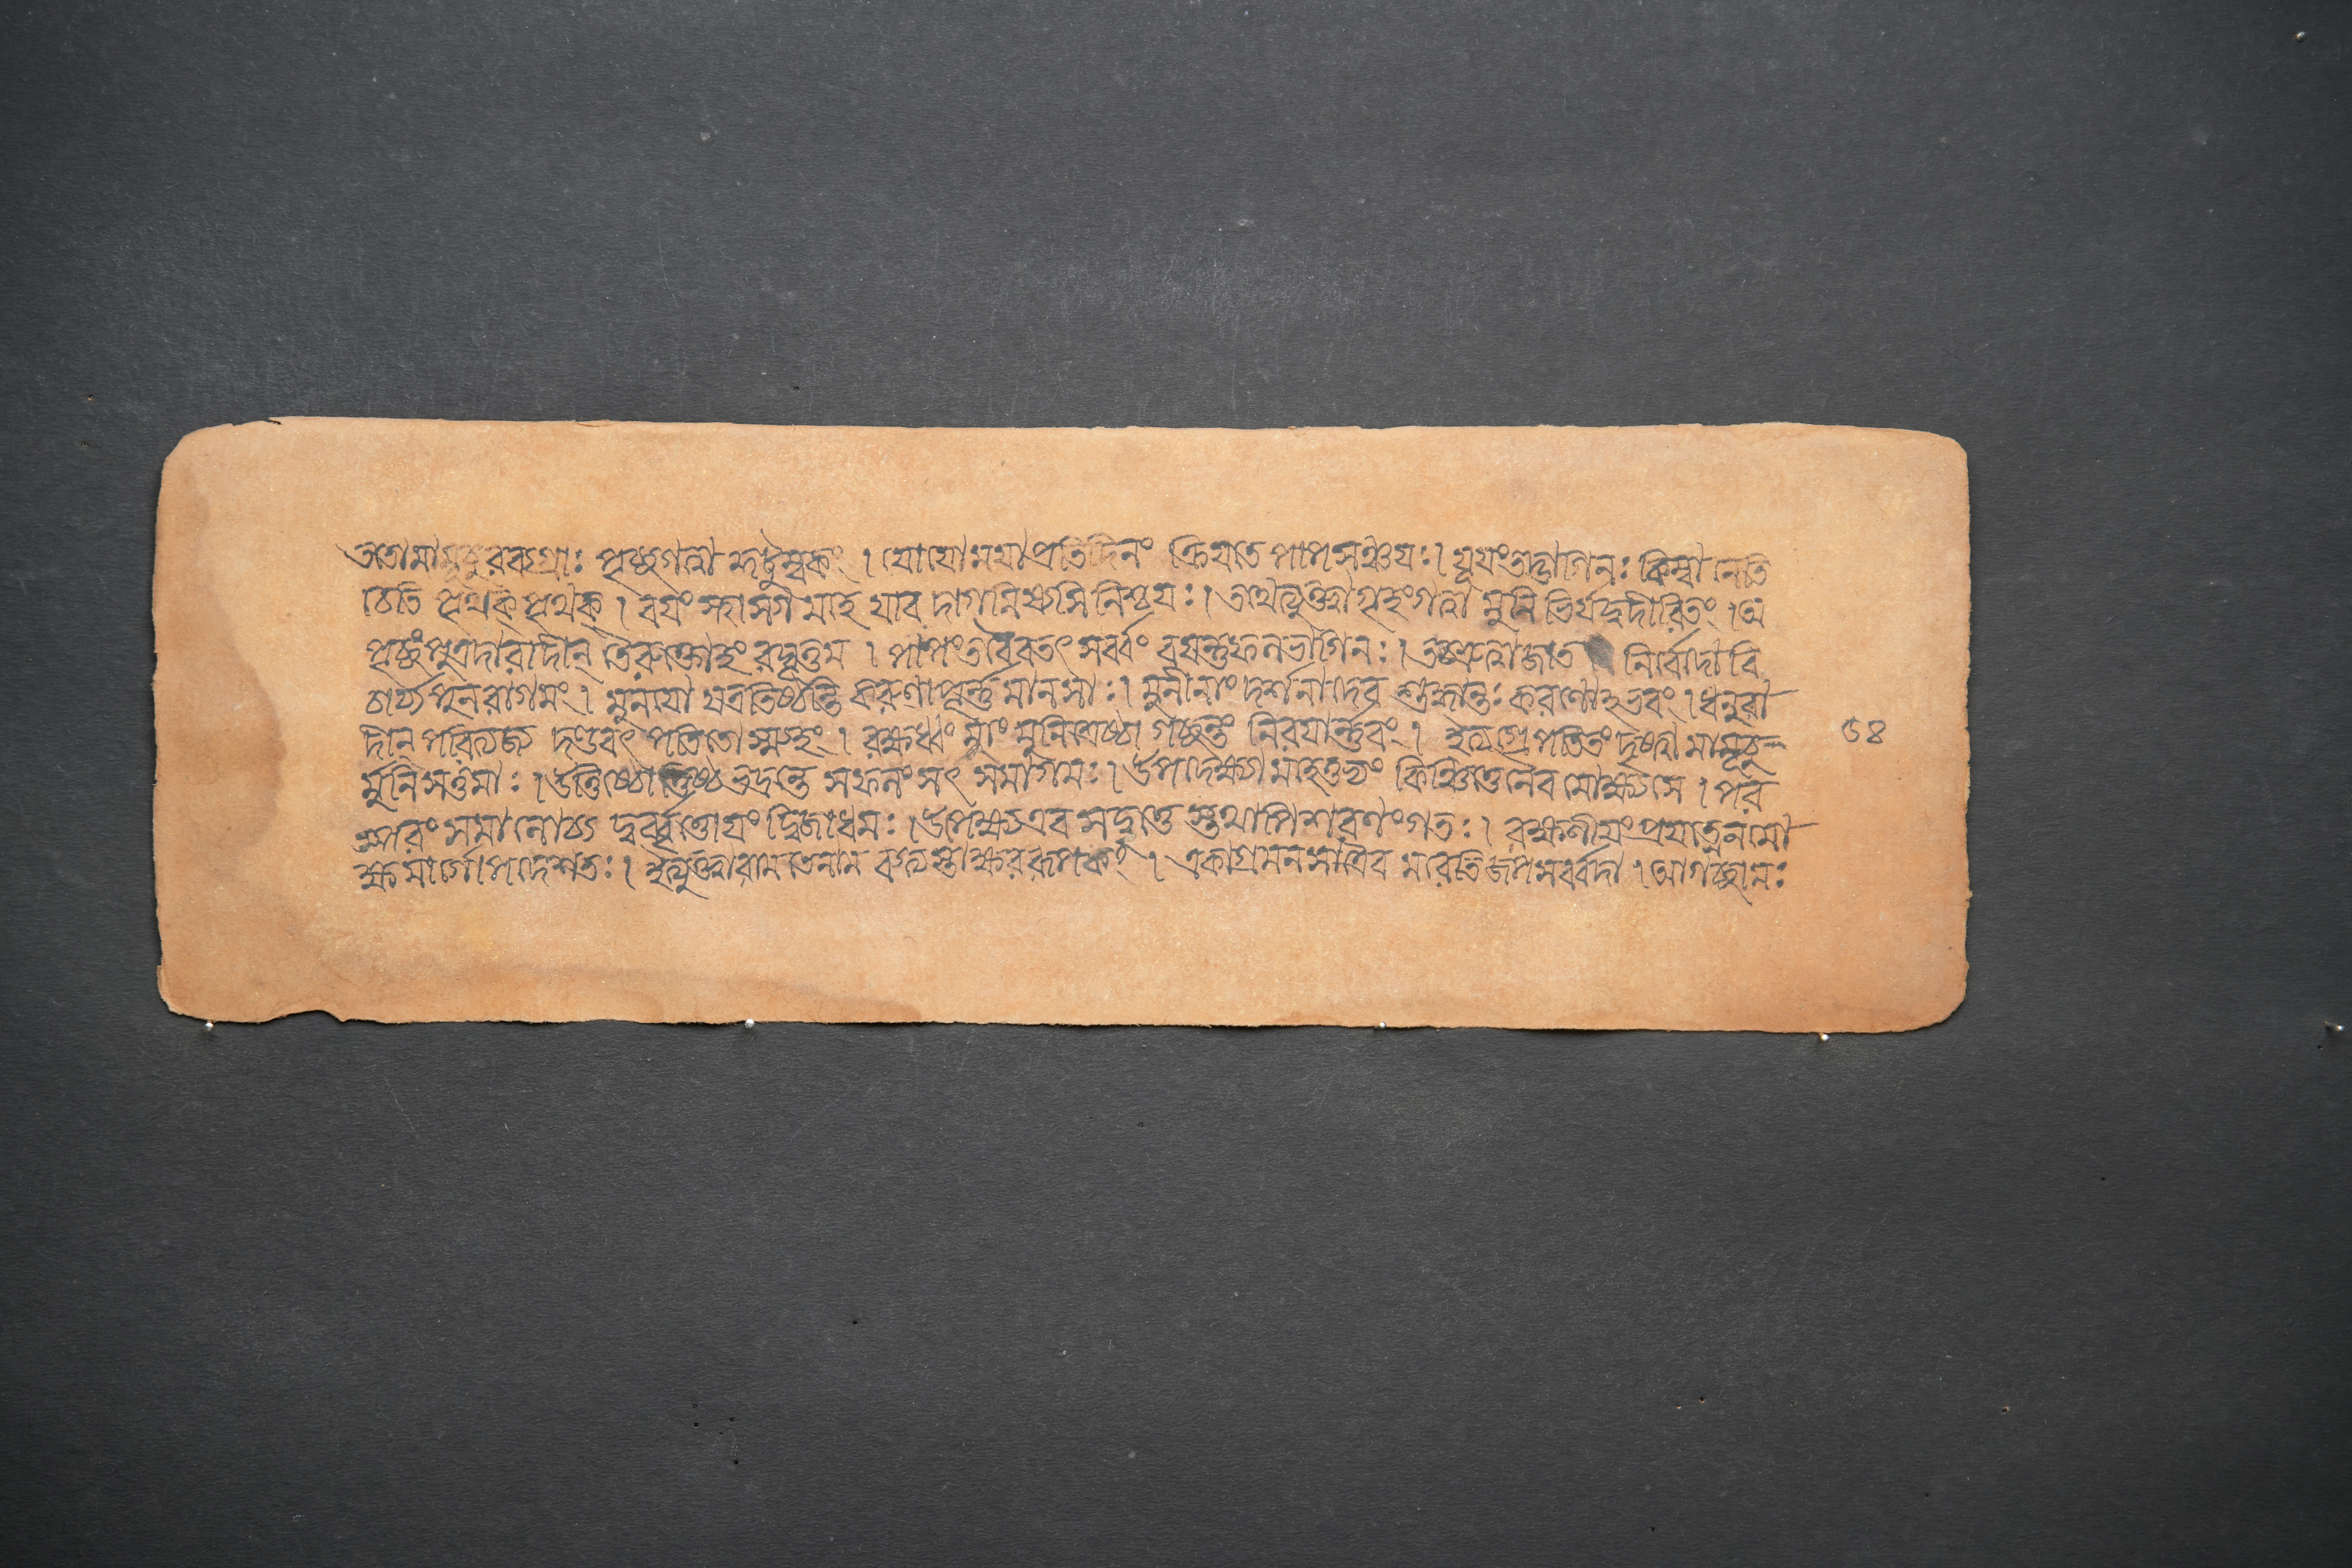 ততো মামূচুরব্যগ্রাঃ পৃচ্ছ গত্বা কুটুম্বকং । যো যো ময়া প্রতিদিনং ক্রিয়তে পাপসঞ্চয়ঃ । যূয়ং তদ্ভাগিনঃ কিম্বা নেতি
বেতি পৃথক্ পৃথক্ । বয়ং স্থাস্যামহে যাবদাগমিষ্যসি নিশ্চয়ঃ । তথেত্যুক্ত্বা গৃহং গত্বা মুনিভির্যদুদীরিতং । অ
পৃচ্ছং পুত্রদারাদীন্ তৈরুক্তোহং রঘূত্তম । পাপং তবৈব তৎ সর্ব্বং বয়ন্তু ফলভাগিনঃ । তচ্ছ্রুত্বা জাত নির্বেদো বি
চার্য্য পুনরাগমং । মুনয়ো যত্র তিষ্ঠন্তি করুণাপূর্ন্ন মানসাঃ । মুনীনাং দর্শনাদেব শুদ্ধান্তঃকরণোহভবং । ধনুরা
দীন পরিত্যজ্য দণ্ডবৎ পতিতোস্ম্যহং । রক্ষধ্বং মাং মুনিশ্রেষ্ঠা গচ্ছন্তং নিরয়ার্ন্নবং । ইত্যগ্রে পতিতং দৃষ্ট্বা মামূচু
র্মুনিসত্তমাঃ । উত্তিষ্ঠোত্তিষ্ঠ ভদ্রন্তে সফলং সৎ সমাগমঃ । উপদেক্ষ্যামহে তুভ্যং কিঞ্চিত্তেনৈব মোক্ষ্যসে । পর
স্পরং সমালোচ্য দুর্ব্বৃত্তোয়ং দ্বিজাধমঃ । উপেক্ষ্য এব সদ্বৃত্তৈ স্তথাপি শরণং গতঃ । রক্ষণীয়ং প্রযত্নেন মো
ক্ষ মার্গোপদেশতঃ । ইত্যুক্ত্বা রাম তে নাম ব্যত্যস্তাক্ষররূপকং । একাগ্রমনসাত্রৈব মরেতি জপ সর্ব্বদা । আগচ্ছামঃ
৬৪